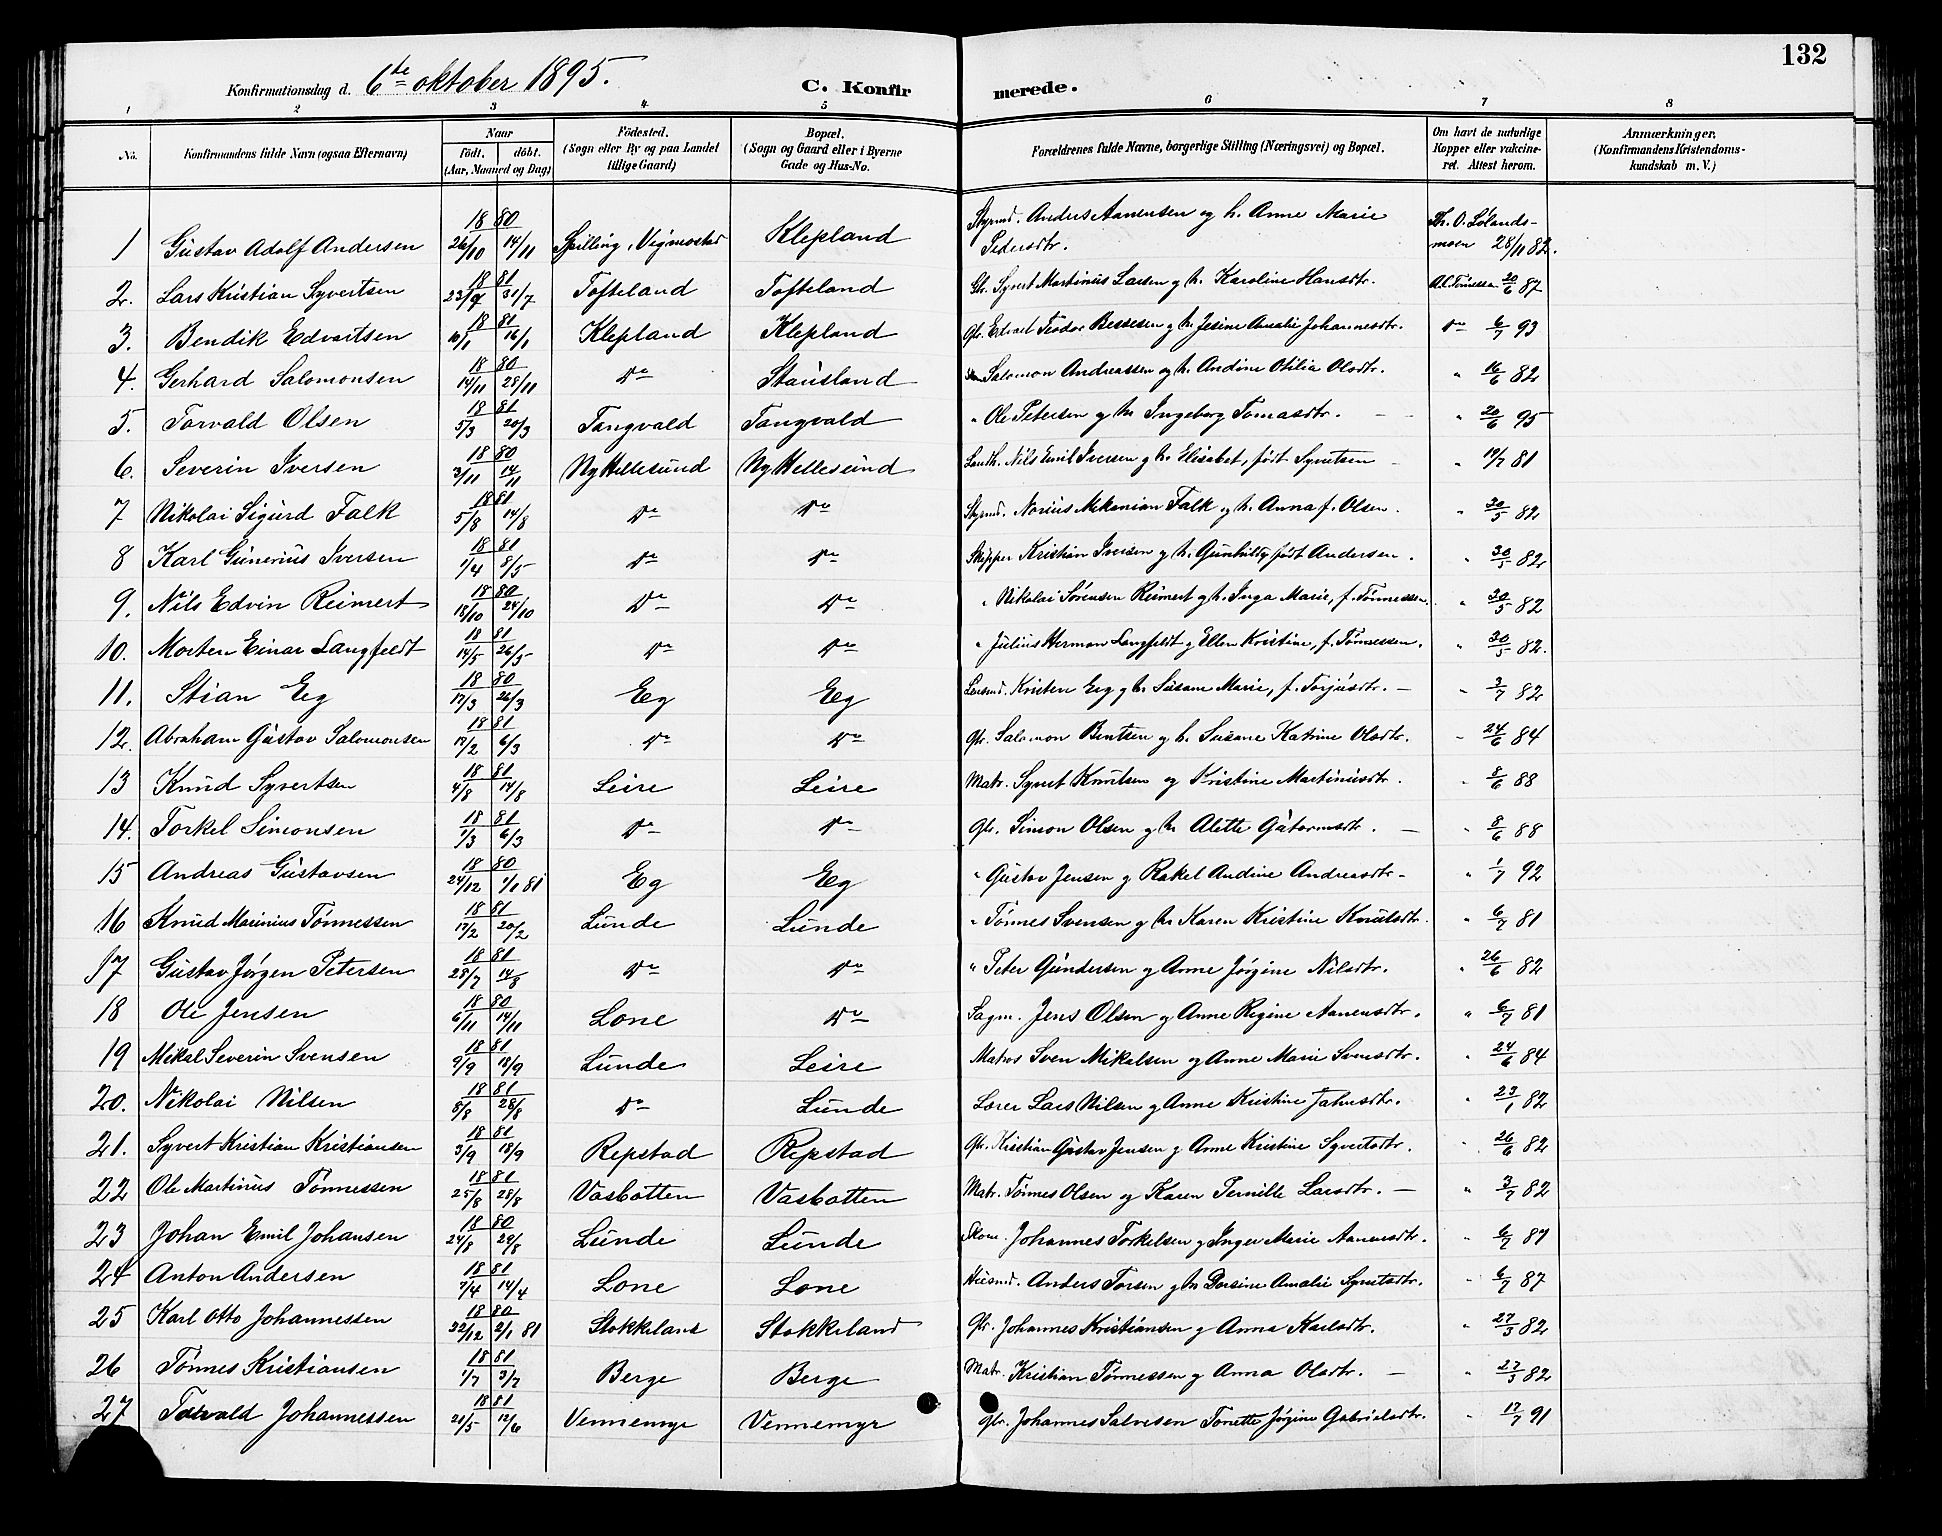 132
Konfirmationsdag d. 6te oktober 1895.
C. Konfirmerede.
1 2 3 4 5 6 7 8
No. Konfirmandens fulde Navn (ogsaa Efternavn) Naar födt, döbt. (Aar, Maaned og Dag) Födested. (Sogn eller By og paa Landet tillige Gaard) Bopæl. (Sogn og Gaard eller i Byerne Gade og Hus-No. Forældrenes fulde Navne, borgerlige Stilling (Næringsvei) og Bopæl. Om havt de naturlige Kopper eller vakcineret. Attest herom. Anmærkninger, (Konfirmandens Kristendomskundskab m. V.)
1 Gustav Adolf Andersen 1880 26/10 14/11 Spilling, Vigmostad Klepland Styrmd. Anders Aanensen og h. Anne Marie Pedersdtr. O. Lölandsmoen 28/11 82.
2. Lars Kristian Syvertsen 1881 31/7 Tofteland Tofteland Gbr. Syvert Martinius Larsen g h. Karoline Hansdtr. 20/6 87
3. Bendik Edvartsen 1881 10/1 16/1 Klepland Klepland Gbr. Edvart Teodor Bessesen g h. Jesine Amalie Johannesdtr. do 6/7 93
4. Gerhard Salomonsen 1880 14/11 28/11 do Stausland Salomon Andreassen og h. Andine Otilia Olsdtr. " 16/6 82
5. Torvald Olsen 1881 5/3 20/3 Tangvald Tangvald " Ole Petersen g h. Ingeborg Tomasdtr. " 20/6 95
6. Severin Iversen 1880 3/11 14/11 Ny Hellesund Ny Hellesund Landh. Nils Emil Iversen g h. Elisabet, född Syvertsen " 19/7 81
7 Nikolai Sigurd Falk 1881 5/8 14/8 do do Styrmd. Norius Mekanian Falk og h. Anna f. Olsen. " 30/5 82
8 Karl Gunerius Iversen 1881 1/4 8/5 do do Skipper Kristian Iversen g h. Gunhild, född Andersen. " 30/5 82
9. Nils Edvin Reimert 1880 18/10 24/10 do do " Nikolai Sörensen Reimert g h. Inga Marie, f. Tönnessen. " 30/5 82
10. Morten Einar Langfeldt 1881 14/5 26/5 do do " Julius Herman Langfeldt g Ellen Kristine, f. Tönnessen. " 30/5 82.
11. Stian Eeg 1880 17/3 26/3 Eeg Eeg Lensmd. Kristen Eeg g h. Susane Marie, f. Torjusdtr. " 3/7 82
12. Abraham Gustav Salomonsen 1881 17/2 6/3 do do Gbr. Salomon Bentsen g h. Susane Katrine Olsdtr. " 24/6 84
13 Knud Syvertsen 1881 4/8 14/8 Leire Leire Matr. Syvert Knutsen og Kristine Martinusdtr. " 8/6 88
14. Torkel Simonsen 1881 1/3 6/3 do do Gbr. Simon Olsen g h. Alette Gutormsdtr. " 8/6 88
15 Andreas Gustavsen 1880 24/12 1/1 81 Eg Eeg " Gustav Jensen g Rakel Andine Andreasdtr " 1/7 92
16 Knud Marinius Tönnessen 1881 17/2 20/2 Lunde Lunde " Tönnes Svensen g h. Karen Kristine Knutsdtr. " 6/7 81
17 Gustav Jörgen Petersen 1881 28/7 14/8 do do " Peter Gundersen g Anne Jörgine Nilsdtr. " 26/6 82
18 Ole Jensen 1880 6/11 14/11 Lone do Sagm. Jens Olsen g Anne Regine Aanensdtr. " 6/7 81
19 Mikal Severin Svensen 1881 9/9 18/9 Lunde Leire Matros Sven Mikalsen og Anne Marie Svensdtr. " 24/6 84
20. Nikolai Nilsen 1881 8/8 28/8 do Lunde Lærer Lars Nilsen g Anne Kristine Jahnsdtr. " 23/1 82
21. Syvert Kristian Kristiansen 1881 3/9 18/9 Repstad Repstad Gbr. Kristian Gustav Jensen g Anne Kristine Syvertsdtr. " 26/6 82
22 Ole Martinus Tönnessen 1881 25/8 28/8 Vasbotten Vasbotten Matr. Tönnes Olsen og Karen Pernille Larsdtr. " 3/7 82
23 Johan Emil Johansen 1880 24/8 29/8 Lunde Lunde Skom. Johannes Torkelsen g Inger Marie Aanensdtr. " 6/7 87
24 Anton Andersen 1881 7/4 14/4 Lone Lone Husmd. Anders Torsen g h. Dorsine Amalie Syvertsdtr. " 6/7 87
25 Karl Otto Johannessen 1880 22/12 2/1 81 Stokkeland Stokkeland Gbr. Johannes Kristiansen g Anna Karlsdtr. " 27/3 82
26 Tönnes Kristiansen 1881 1/7 3/7 Berge Berge Matr. Kristian Tönnessen g Anna Olsdtr. " 27/3 82
27 Torvald Johannessen 1881 21/5 12/6 Vennemyr Vennemyr Gbr. Johannes Salvesen Tonette Jörgine Gabrielsdtr. " 17/7 91